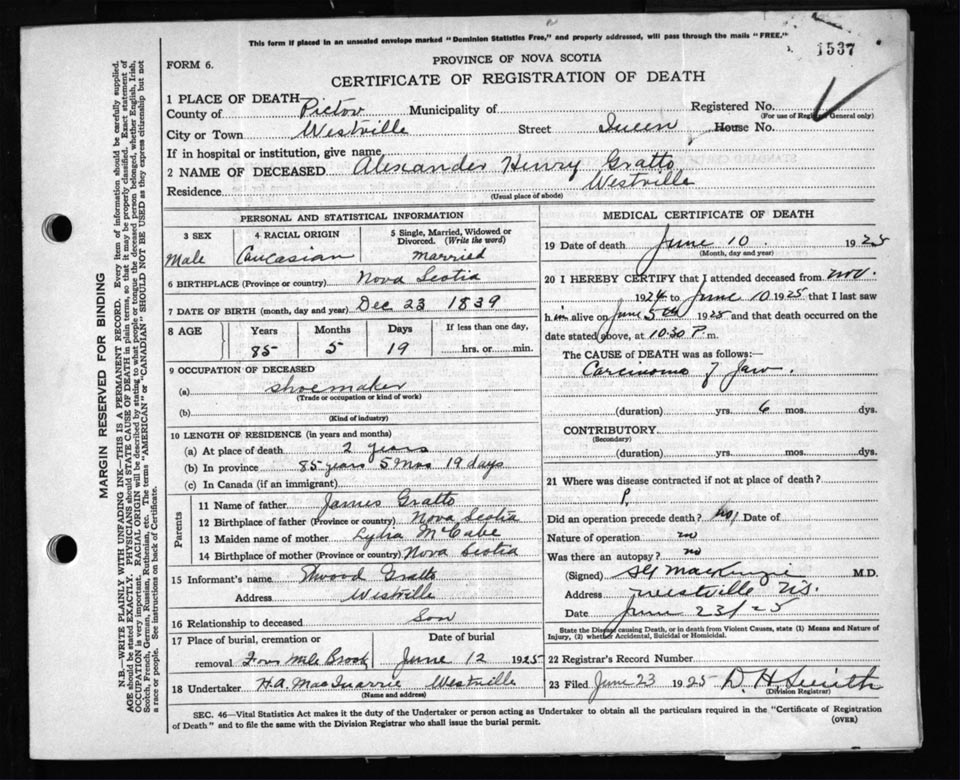 This form if placed in an unsealed envelope marked "Dominion Statistics Free," and properly addressed, will pass through the mails "FREE."
1537
FORM 6.
PROVINCE OF NOVA SCOTIA
CERTIFICATE OF REGISTRATION OF DEATH
1 PLACE OF DEATH—
County of Pictou Municipality of Registered No.
(For use of Registrar General only)
City or Town Westville Street Queen House No.
If in hospital or institution, give name
2 NAME OF DECEASED Alexander Henry Gratto
Residence Westville
(Usual place of abode)
PERSONAL AND STATISTICAL INFORMATION
3 SEX
Male
4 RACIAL ORIGIN
Caucasian
5 Single, Married, Widowed or Divorced. (Write the word)
Married
6 BIRTHPLACE (Province or country) Nova Scotia
7 DATE OF BIRTH (month, day and year) Dec 23 1839
8 AGE Years Months Days If less than one day,
85 5 19 hrs. or min.
9 OCCUPATION OF DECEASED
(a) Shoemaker
(Trade or occupation or kind of work)
(b)
(Kind of industry)
10 LENGTH OF RESIDENCE (in years and months)
(a) At place of death 2 years
(b) In province 85 years 5 Mos 19 days
(c) In Canada (if an immigrant)
Parents
11 Name of father James Gratto
12 Birthplace of father (Province or country) Nova Scotia
13 Maiden name of mother Lydia McCabe
14 Birthplace of mother (Province or country) Nova Scotia
15 Informant's name Elwood Gratto
Address Westville
16 Relationship to deceased Son
17 Place of burial, cremation or removal Four Mile Brook
Date of burial
June 12 1925
18 Undertaker H.A. MacQuarrie Westville
(Name and address)
MEDICAL CERTIFICATE OF DEATH
19 Date of death June 10 1925
(Month, day and year)
20 I HEREBY CERTIFY that I attended deceased from Nov.
1924 to June 10 1925 that I last saw
him alive on June 5th 1925 and that death occurred on the
date stated above, at 10.30 P.m.
The CAUSE of DEATH was as follows:—
Carcinoma of Jaw.
(duration) yrs. 6 mos. dys.
CONTRIBUTORY
(Secondary)
(duration) yrs. mos. dys.
21 Where was disease contracted if not at place of death?
Did an operation precede death? no Date of
Nature of operation
Was there an autopsy? no
(Signed) MacKenzie M.D.
Address Westville N.S.
Date June 23/25
State the Disease causing Death, or in death from Violent Causes, state (1) Means and Nature of Injury, (2) whether Accidental, Suicidal or Homicidal.
22 Registrar's Record Number
23 Filed June 23 1925 D. H Smith
(Division Registrar)
SEC. 46—Vital Statistics Act makes it the duty of the Undertaker or person acting as Undertaker to obtain all the particulars required in the "Certificate of Registration
of Death" and to file the same with the Division Registrar who shall issue the burial permit.
(OVER)
MARGIN RESERVED FOR BINDING
N.B.—WRITE PLAINLY WITH UNFADING INK—THIS IS A PERMANENT RECORD. Every item of information should be carefully supplied.
AGE should be stated EXACTLY. PHYSICIANS should STATE CAUSE OF DEATH in plain terms, so that it may be properly classified. Exact statement of
OCCUPATION is very important. RACIAL ORIGIN will be described by stating to what people or tongue the deceased person belonged, whether English, Irish,
Scotch, French, German, Russian, Ruthenian, etc. The terms "AMERICAN" or "CANADIAN" SHOULD NOT BE USED as they express citizenship but not
a race or people. See instructions on back of Certificate.